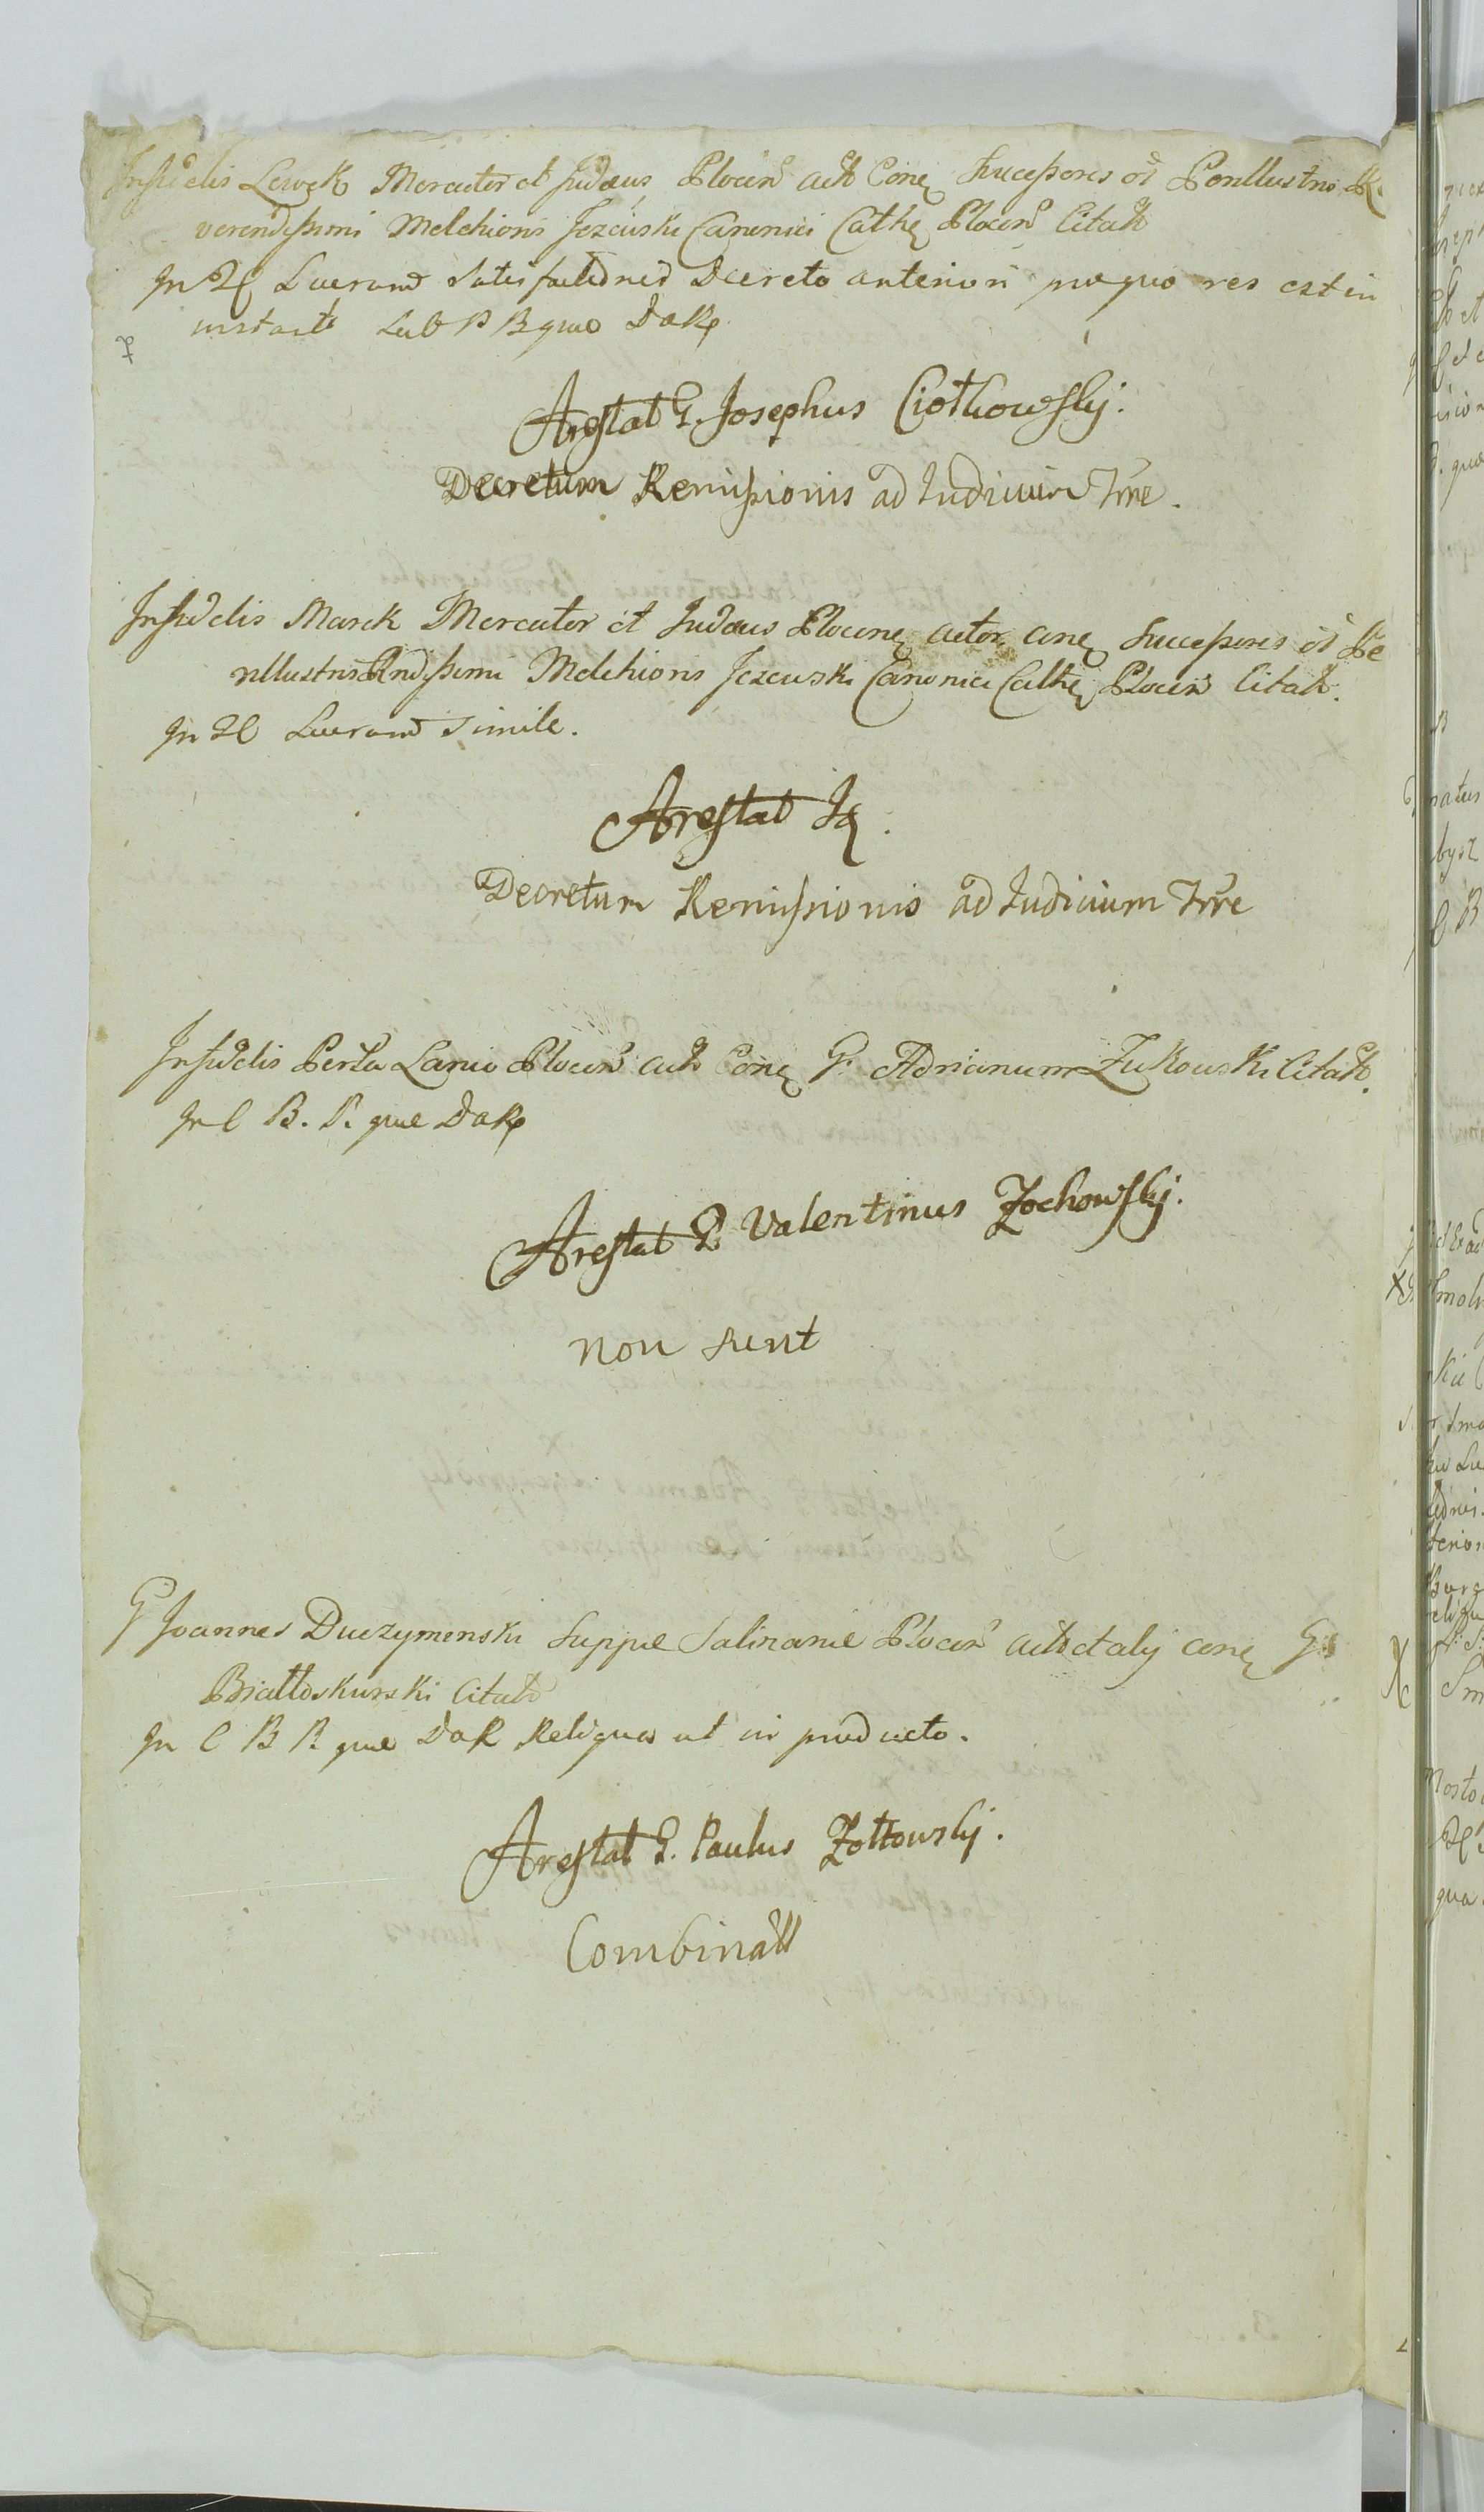 Infidelis Lewek Mercator et Judæus Plocen act Cone Successores oĩ Perillustris Re
verendissimi Melchioris Jezewski Canonici Cathe Plocen Citat
In Lucrand Satisfactionis Decreto anteriori pro quo res est in
instant Sub P B quo Dak
Arestat G. Josephus Ciołkowskj.
Decretum Remissionis ad Iudicium Trre.
Infidelis Marek Mercator et Judæus Plocene actor cone Successores oĩ Pe
rillustris Rndissimi Melchioris Jezewski Canonici Cathe Plocen Citat.
In Lucrand Simile.
Arestat Iq.
Decretum Remissionis ad Iudicium Trre
Infidelis Perla Lanio Plocen act Cone G. Adrianum Zukowski Citat.
In C B. P. que Dak
Arestat G Valentinus Zochowskj.
non sunt
G Joannes Duczymenski Suppæ Salinariæ Plocen act et alij cone G
Białłoskurski Citat
In C B P. que Dak Reliqua ut in producto.
Arestat G. Paulus Zołtowskj.
Combinatt